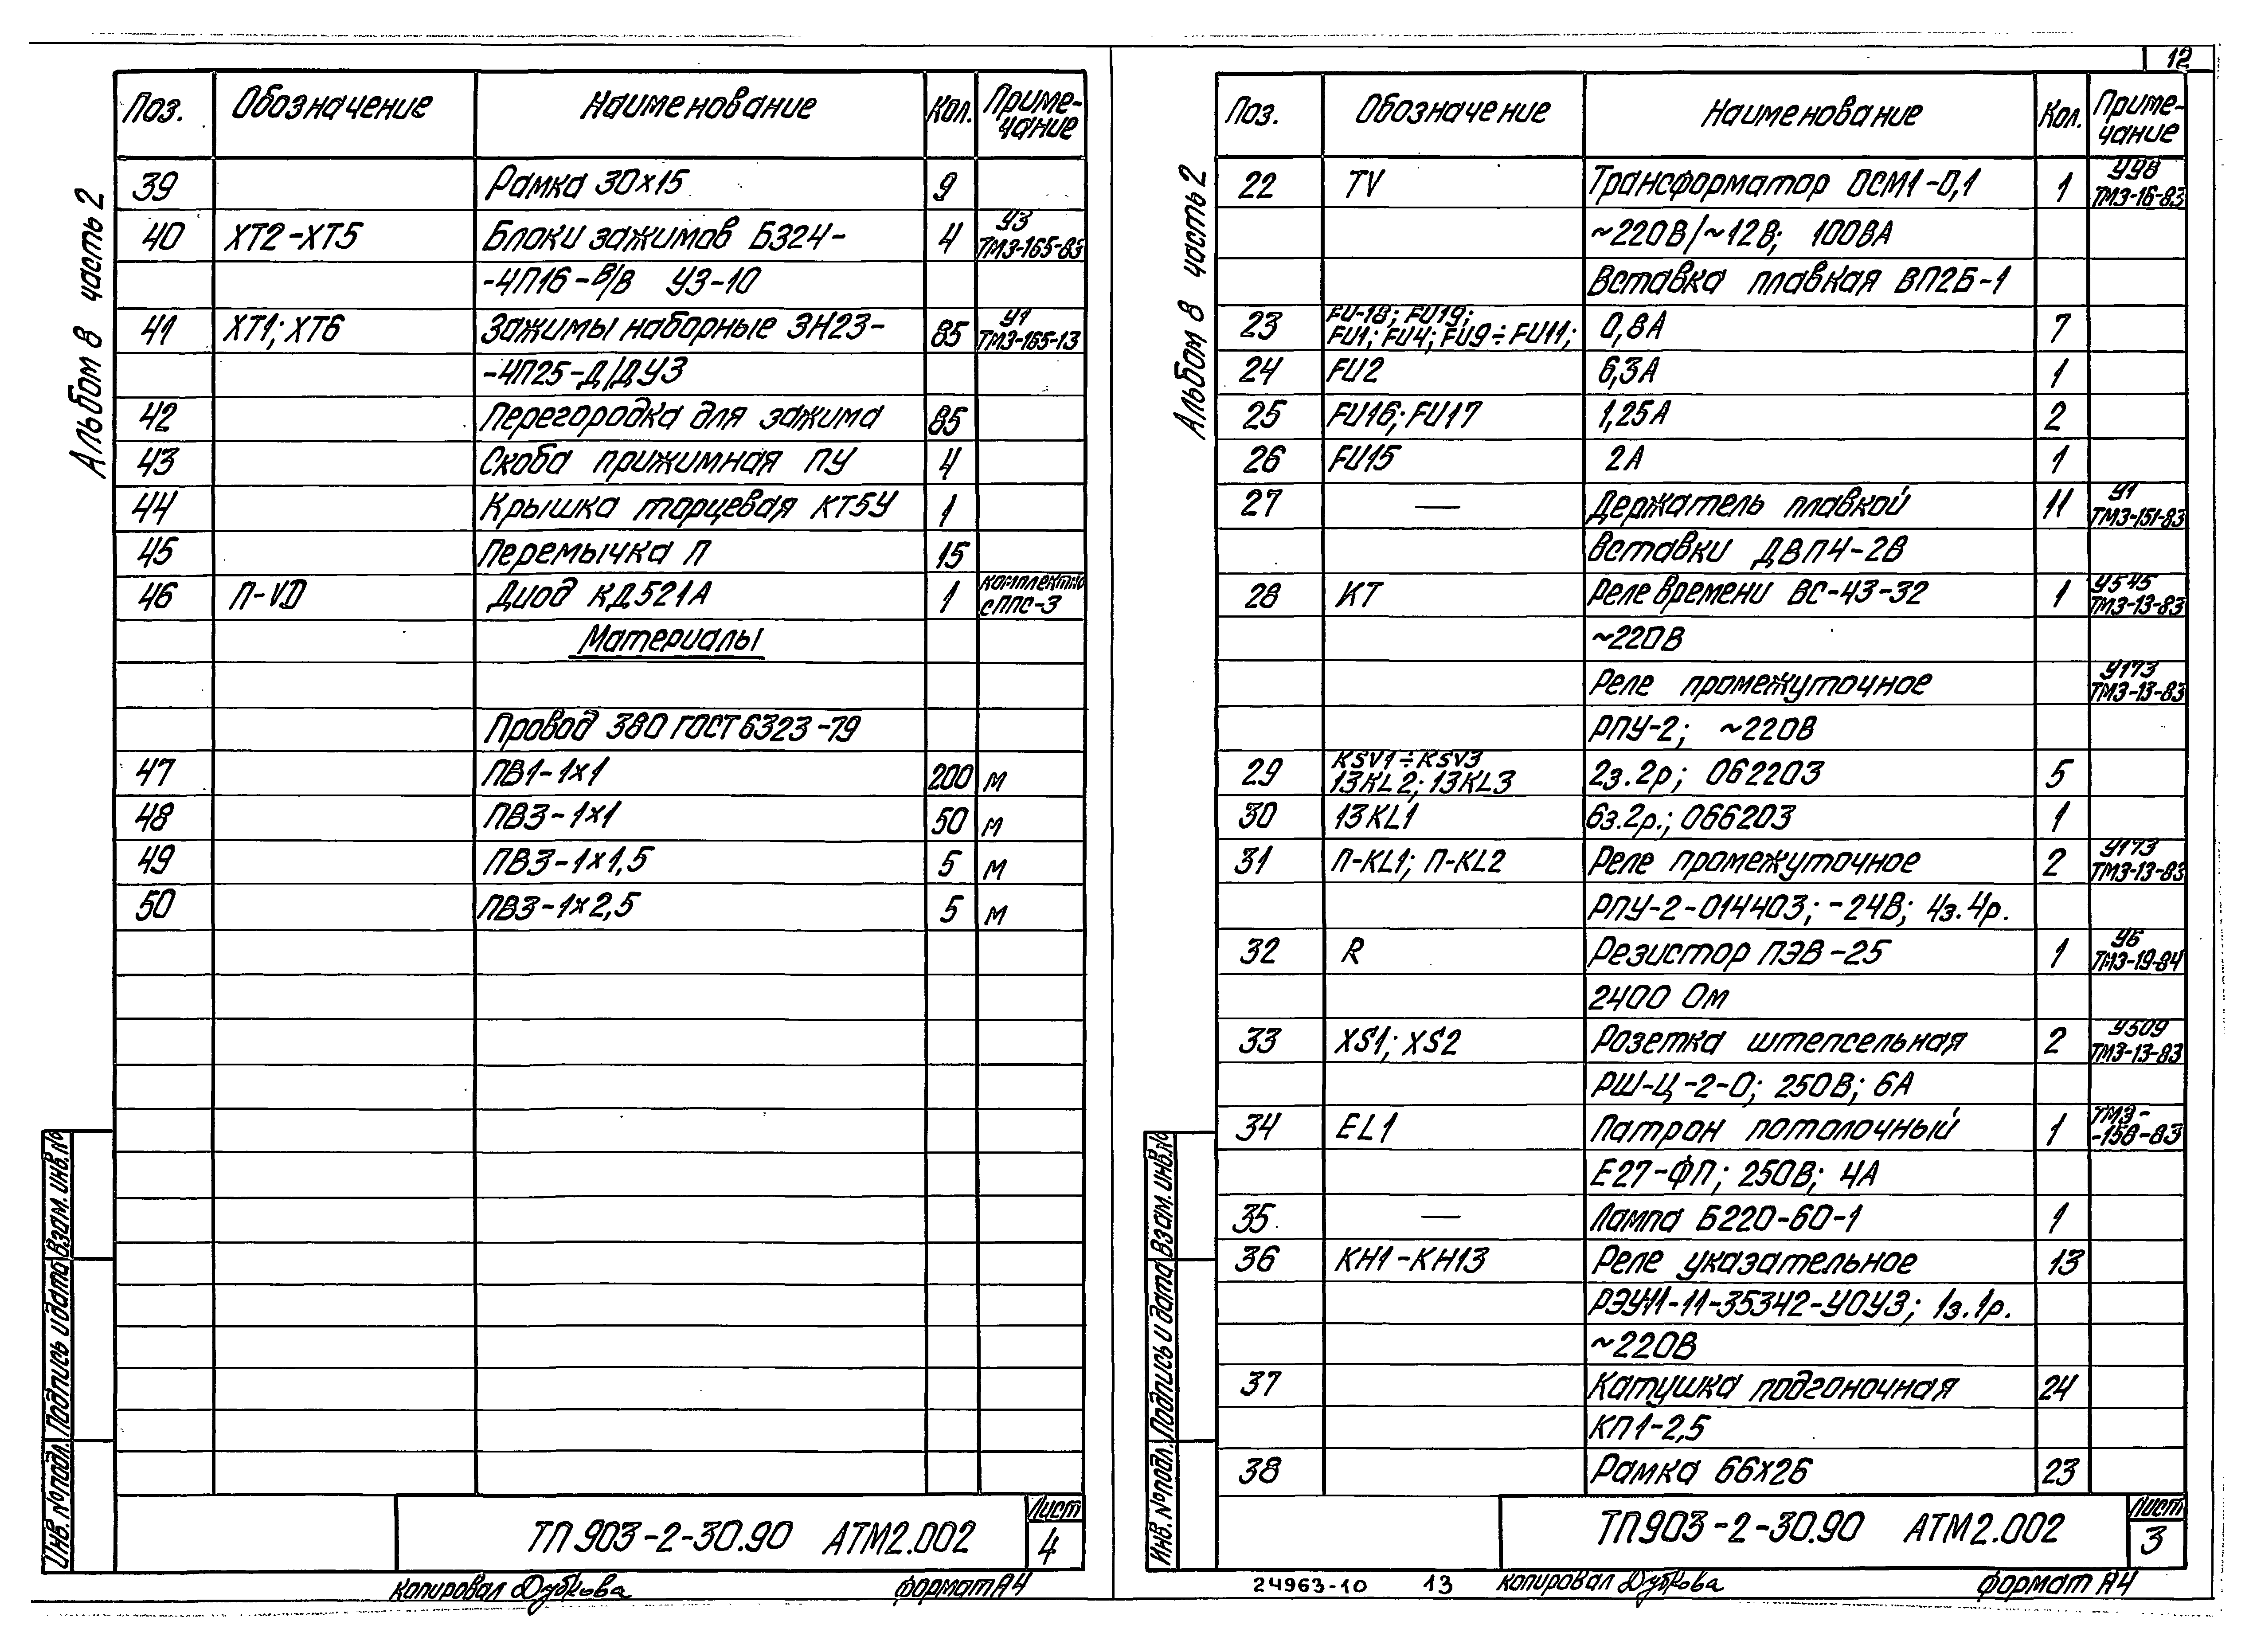 Альбом 8 часть 2
Поз. Обозначение Наименование Кол. Приме-
чание
39 Рамка 30х15 9
40 ХТ2-ХТ5 Блоки зажимов Б324- 4 У3 ТМ3-165-83
-4П16-В/В У3-10
41 ХТ1; ХТ6 Зажимы наборные ЗН23- 85 У1 ТМ3-165-13
-4П25-Д/ДУ3
42 Перегородка для зажима 85
43 Скоба прижимная ПУ 4
44 Крышка торцевая КТ5У 1
45 Перемычка П 15
46 П-VD Диод КД521А 1 комплектно с ППС-3
Материалы
Провод 380 ГОСТ 6323-79
47 ПВ1-1х1 200 м
48 ПВ3-1х1 50 м
49 ПВ3-1х1,5 5 м
50 ПВ3-1х2,5 5 м
Инв. № подл. Подпись и дата Взам. инв. №
ТП 903-2-30.90 АТМ2.002
Лист
4
копировал Дубкова формат А4
12
Альбом 8 часть 2
Поз. Обозначение Наименование Кол. Приме-
чание
22 TV Трансформатор ОСМ1-0,1 1 У98 ТМ3-16-83
~220В/~12В; 100ВА
Вставка плавкая ВП2Б-1
23 FU-18; FU19;
FU1; FU4; FU9÷FU11; 0,8А 7
24 FU2 6,3А 1
25 FU16; FU17 1,25А 2
26 FU15 2А 1
27 — Держатель плавкой 11 У1 ТМ3-151-83
вставки ДВП4-2В
28 КТ Реле времени ВС-43-32 1 У545 ТМ3-13-83
~220В
Реле промежуточное У173 ТМ3-13-83
РПУ-2; ~220В
29 KSV1÷KSV3
13KL2; 13KL3 2з.2р; 062203 5
30 13KL1 6з.2р.; 066203 1
31 П-KL1; П-KL2 Реле промежуточное 2 У173 ТМ3-13-83
РПУ-2-014403; -24В; 4з.4р.
32 R Резистор ПЭВ-25 1 У6 ТМ3-19-84
2400 Ом
33 XS1; XS2 Розетка штепсельная 2 У509 ТМ3-13-83
РШ-Ц-2-0; 250В; 6А
34 EL1 Патрон потолочный 1 ТМ3-
-158-83
Е27-ФП; 250В; 4А
35 — Лампа Б220-60-1 1
36 КН1-КН13 Реле указательное 13
РЭУ11-11-35342-40У3; 1з.1р.
~220В
37 Катушка подгоночная 24
КП1-2,5
38 Рамка 66х26 23
Инв. № подл. Подпись и дата Взам. инв. №
ТП 903-2-30.90 АТМ2.002
Лист
3
24963-10 13 копировал Дубкова формат А4